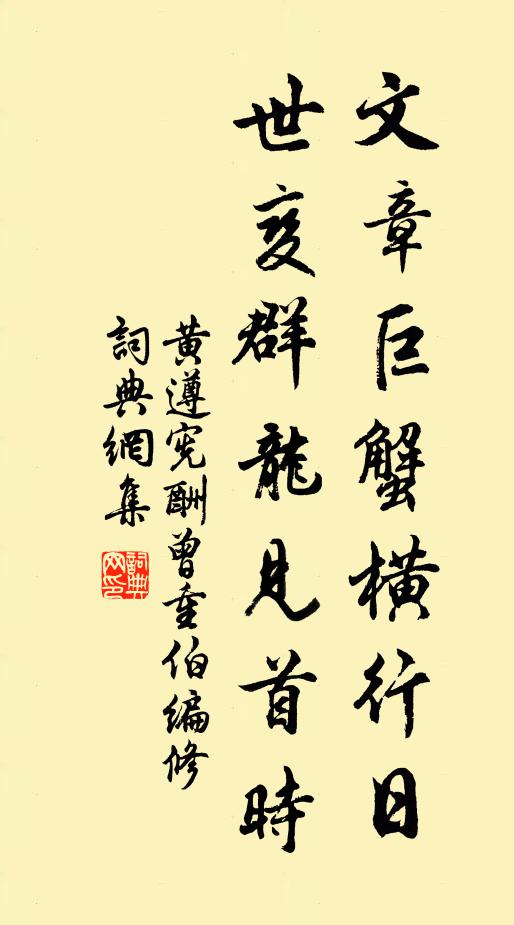 文章巨蟹橫行日
世变群龍見首時
黃遵宪酬曾重伯编修
詞典網集
詞典网印